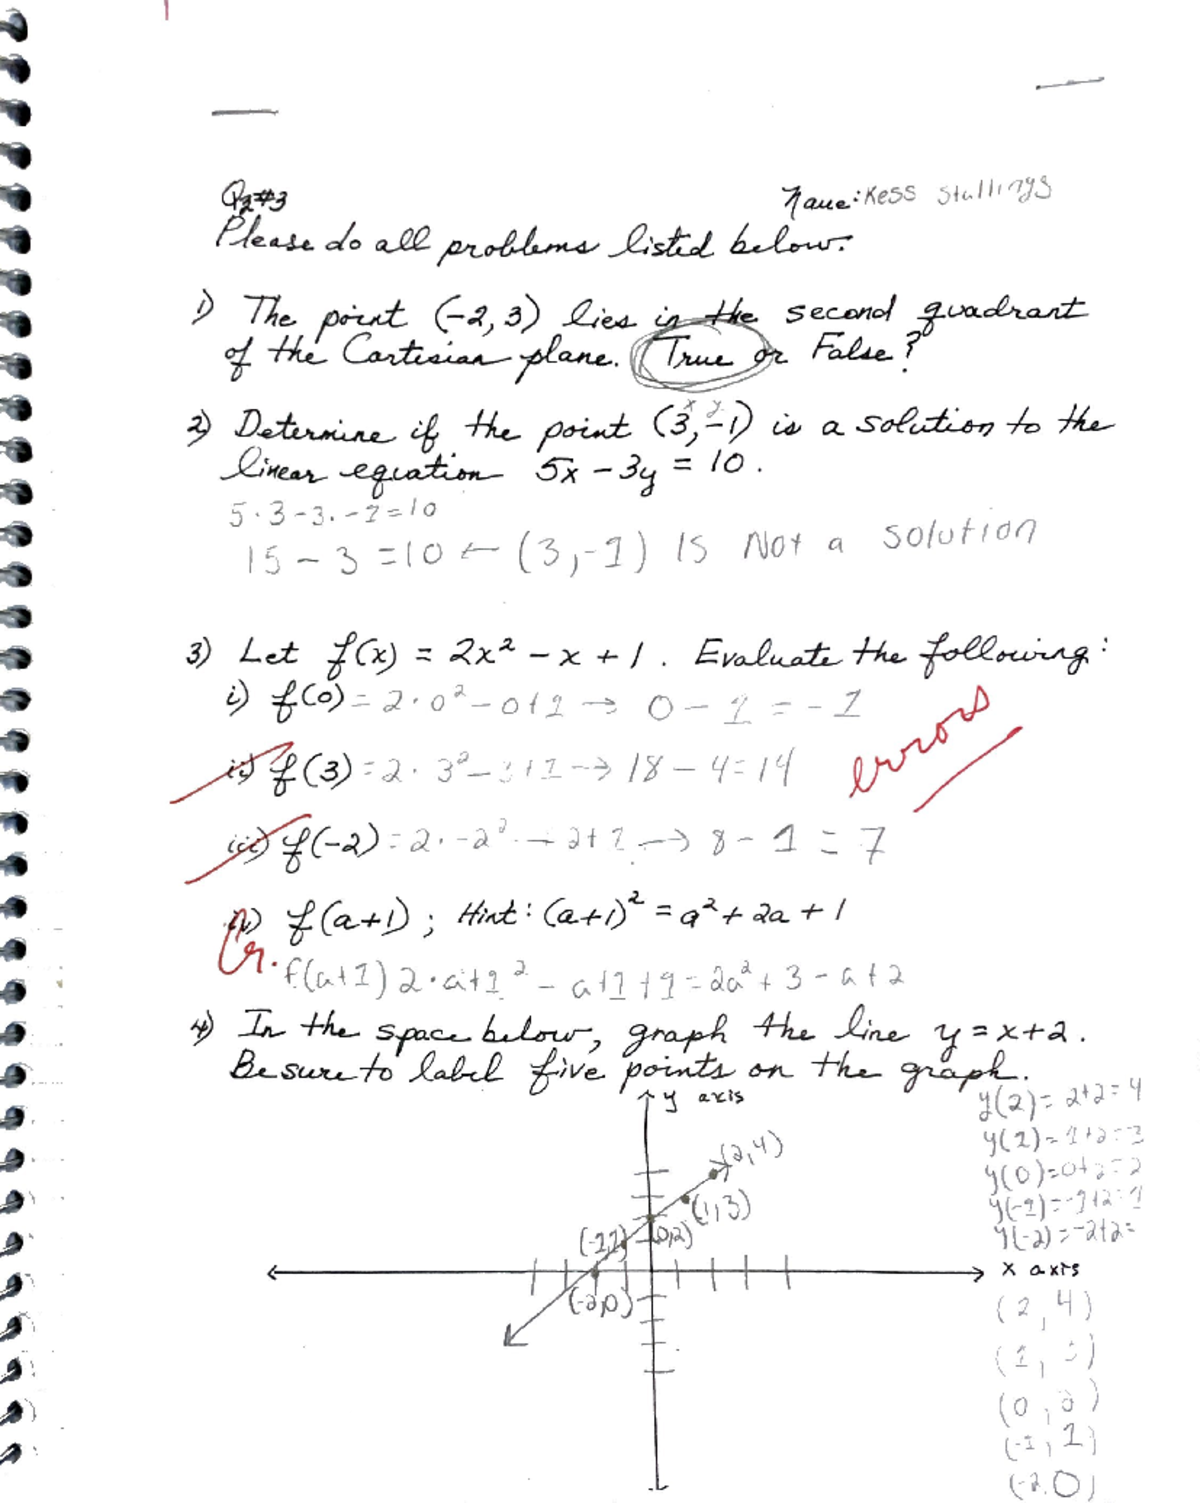 Q2#3
Name: Kess Stallings
Please do all problems listed below:
1) The point (-2, 3) lies in the second quadrant
of the Cartesian plane. True or False?
x y
2) Determine if the point (3, -1) is a solution to the
linear equation 5x - 3y = 10.
5·3-3·-1=10
15-3=10 ← (3,-1) IS Not a solution
3) Let f(x) = 2x² - x + 1. Evaluate the following:
i) f(0) = 2·0²-0+1 → 0-1=-1
errors
ii) f(3) = 2·3²-3+1 → 18-4=14
iii) f(-2) = 2·-2² - 2+1 → 8-1=7
iv) f(a+1); Hint: (a+1)² = a²+2a+1
f(a+1) 2·a+1² - a+1+1 = 2a²+3-a+2
4) In the space below, graph the line y = x+2.
Be sure to label five points on the graph.
y axis
y(2)=2+2=4
y(1)=1+2=3
y(0)=0+2=2
y(-1)=-1+2=1
y(-2)=-2+2=
(2,4)
(1,3)
(-1,1)
(0,2)
x axis
(-2,0)
(2,4)
(1,3)
(0, )
(-1,1)
(-2,0)